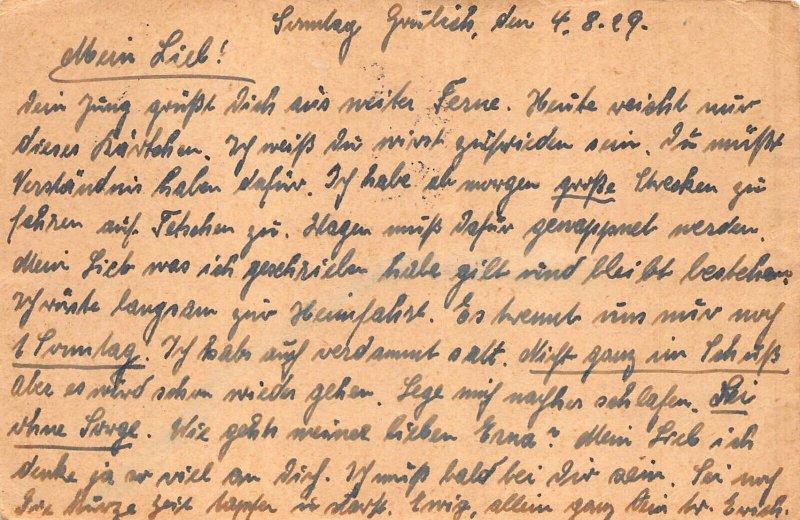 Sonntag Grulich, den 4.8.29.
Mein Lieb!
Dein Jung grüßt Dich aus weiter Ferne. Heute reicht nur
dieses Kärtchen. Ich weiß Du wirst zufrieden sein. Du mußt
Verständnis haben dafür. Ich habe ab morgen große Strecken zu
fahren auf Tetschen zu. Wagen muß dafür gewappnet werden.
Mein Lieb was ich geschrieben habe gilt und bleibt bestehen.
Ich rüste langsam zur Heimfahrt. Es trennt uns nur noch
1 Sonntag. Ich habs auch verdammt satt. Nicht ganz im Schuß
aber es wird schon wieder gehen. Lege mich nachher schlafen. Sei
ohne Sorge. Wie gehts meiner lieben Erna? Mein Lieb ich
denke ja so viel an Dich. Ich muß bald bei Dir sein. Sei noch
die kurze Zeit tapfer u stark. Ewig, allein ganz Dein tr. Erich.